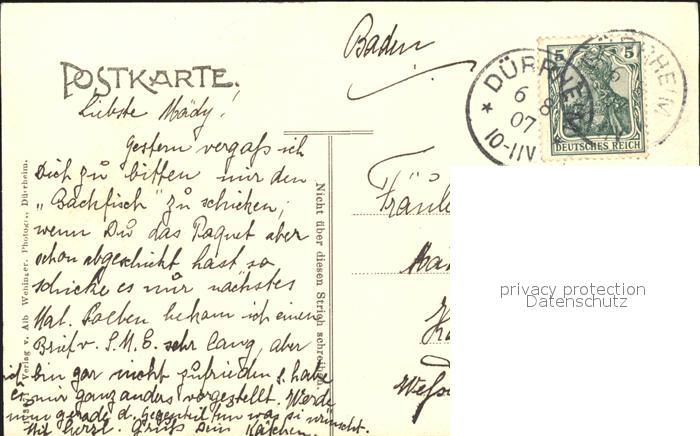 Baden
POSTKARTE.
5 5
DÜRRHEIM
6 8
07
10-11V
DEUTSCHES REICH
DÜRRHEIM
Liebste Mädy!
Gestern vergaß ich
Dich zu bitten mir den
„Backfisch" zu schicken,
wenn Du das Paquet aber
schon abgeschickt hast so
schicke es mir nächstes
Mal. Soeben bekam ich einen
Brief v. S.M.E. sehr lang, aber
ich bin gar nicht zufrieden s. habe
es mir ganz anders vorgestellt. Werde
nun gerade d. Gegenteil tun was si wünscht.
Mit herzl. Gruß Dein Kätchen.
Verlag v. Alb Wehinger, Photogr., Dürrheim.
Nicht über diesen Strich schreiben
Fräule
privacy protection
Datenschutz